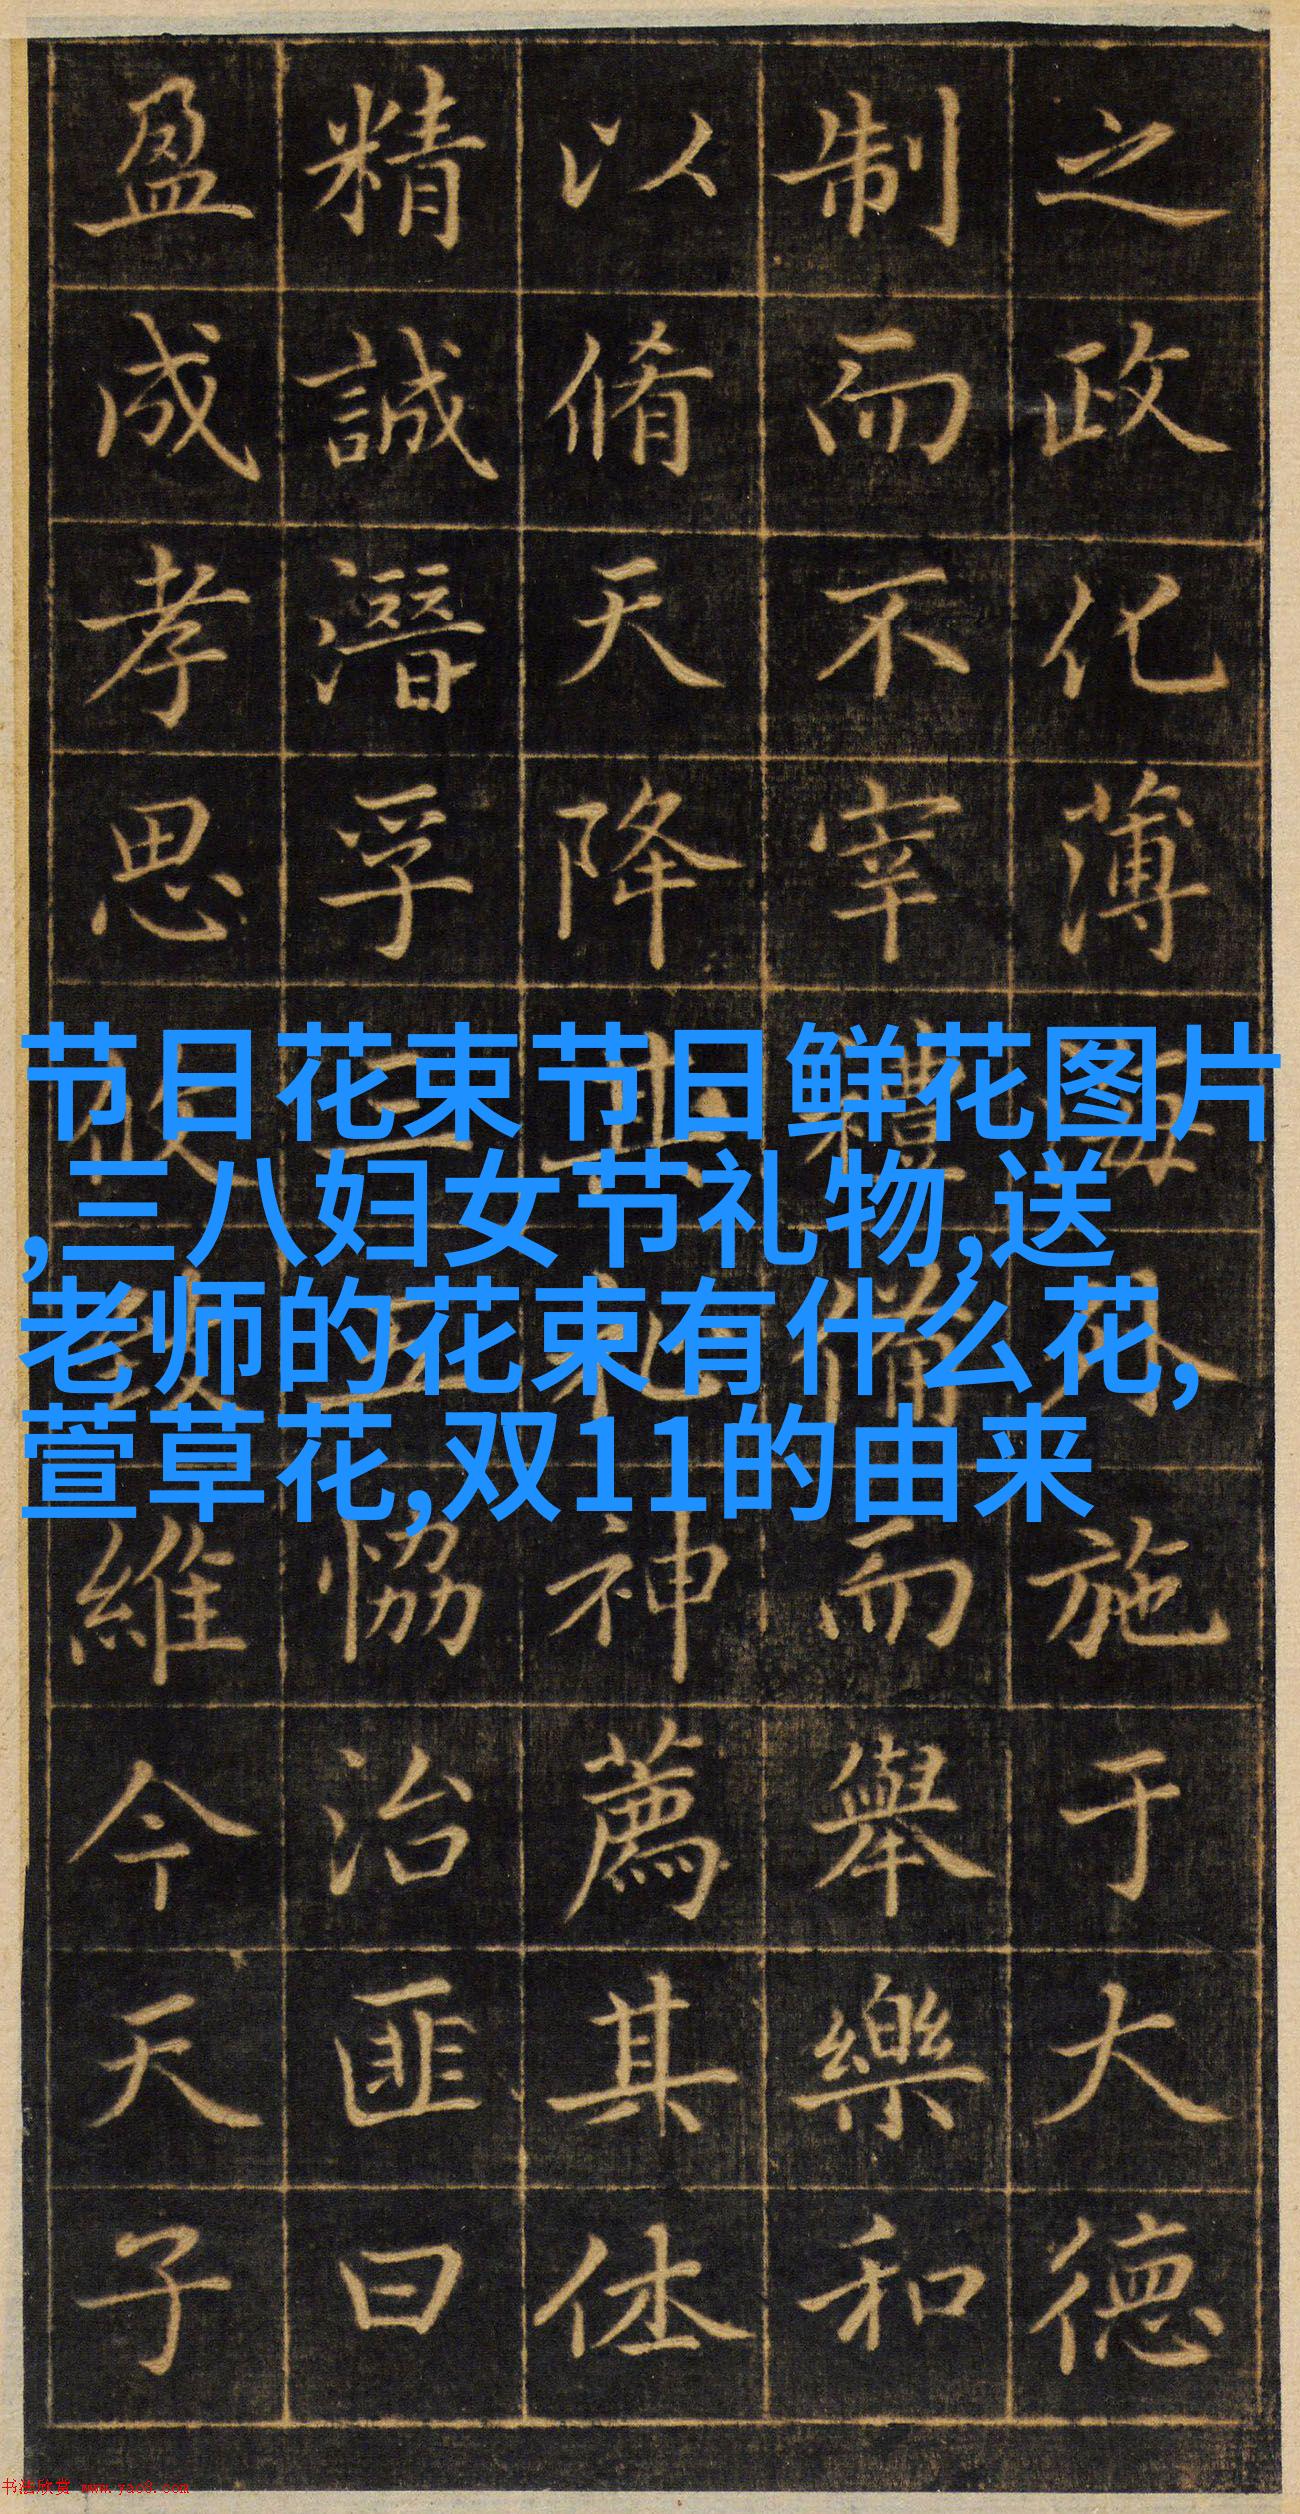 之政化薄海外施于大德
制而不宰禮備而舉樂和
以脩天降其礼神薦其休
精誠潛孚三五恊治匪曰
盈成孝思攸維今天子
节日花束节日鲜花图片
,三八妇女节礼物,送
老师的花束有什么花,
萱草花,双11的由来
书法欣赏 www.yac8.com